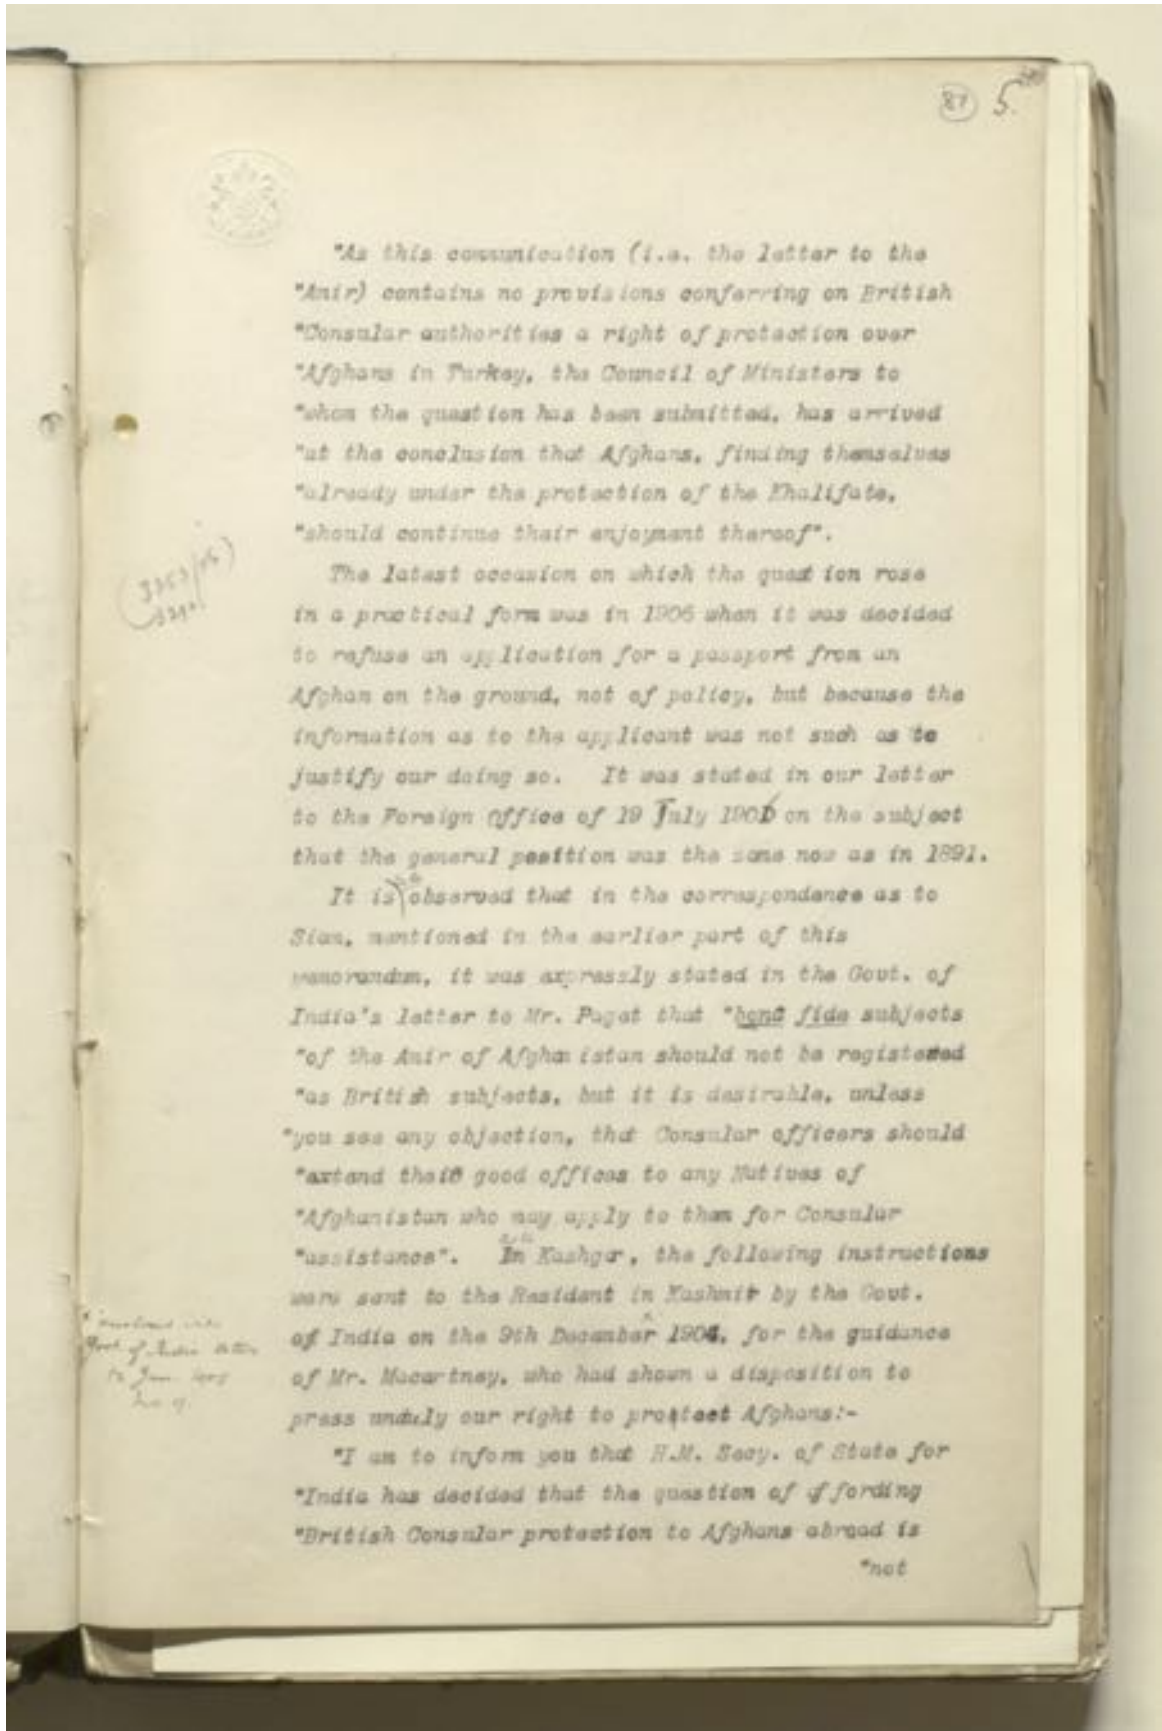 87 5.
"As this communication (i.e. the letter to the
"Amir) contains no provisions conferring on British
"Consular authorities a right of protection over
"Afghans in Turkey, the Council of Ministers to
"whom the question has been submitted, has arrived
"at the conclusion that Afghans, finding themselves
"already under the protection of the Khalifate,
"should continue their enjoyment thereof".
(3353/05)
The latest occasion on which the question rose
in a practical form was in 1906 when it was decided
to refuse an application for a passport from an
Afghan on the ground, not of policy, but because the
information as to the applicant was not such as to
justify our doing so. It was stated in our letter
to the Foreign Office of 19 July 1906 on the subject
that the general position was the same now as in 1891.
It is observed that in the correspondence as to
Siam, mentioned in the earlier part of this
memorandum, it was expressly stated in the Govt. of
India's letter to Mr. Paget that "bona fide subjects
"of the Amir of Afghanistan should not be registered
"as British subjects, but it is desirable, unless
"you see any objection, that Consular officers should
"extend their good offices to any Natives of
"Afghanistan who may apply to them for Consular
"assistance". In Kashgar, the following instructions
were sent to the Resident in Kashmir by the Govt.
of India on the 9th December 1904, for the guidance
of Mr. Macartney, who had shown a disposition to
press unduly our right to protect Afghans:-
Govt of India letter
"I am to inform you that H.M. Secy. of State for
"India has decided that the question of affording
"British Consular protection to Afghans abroad is
"not